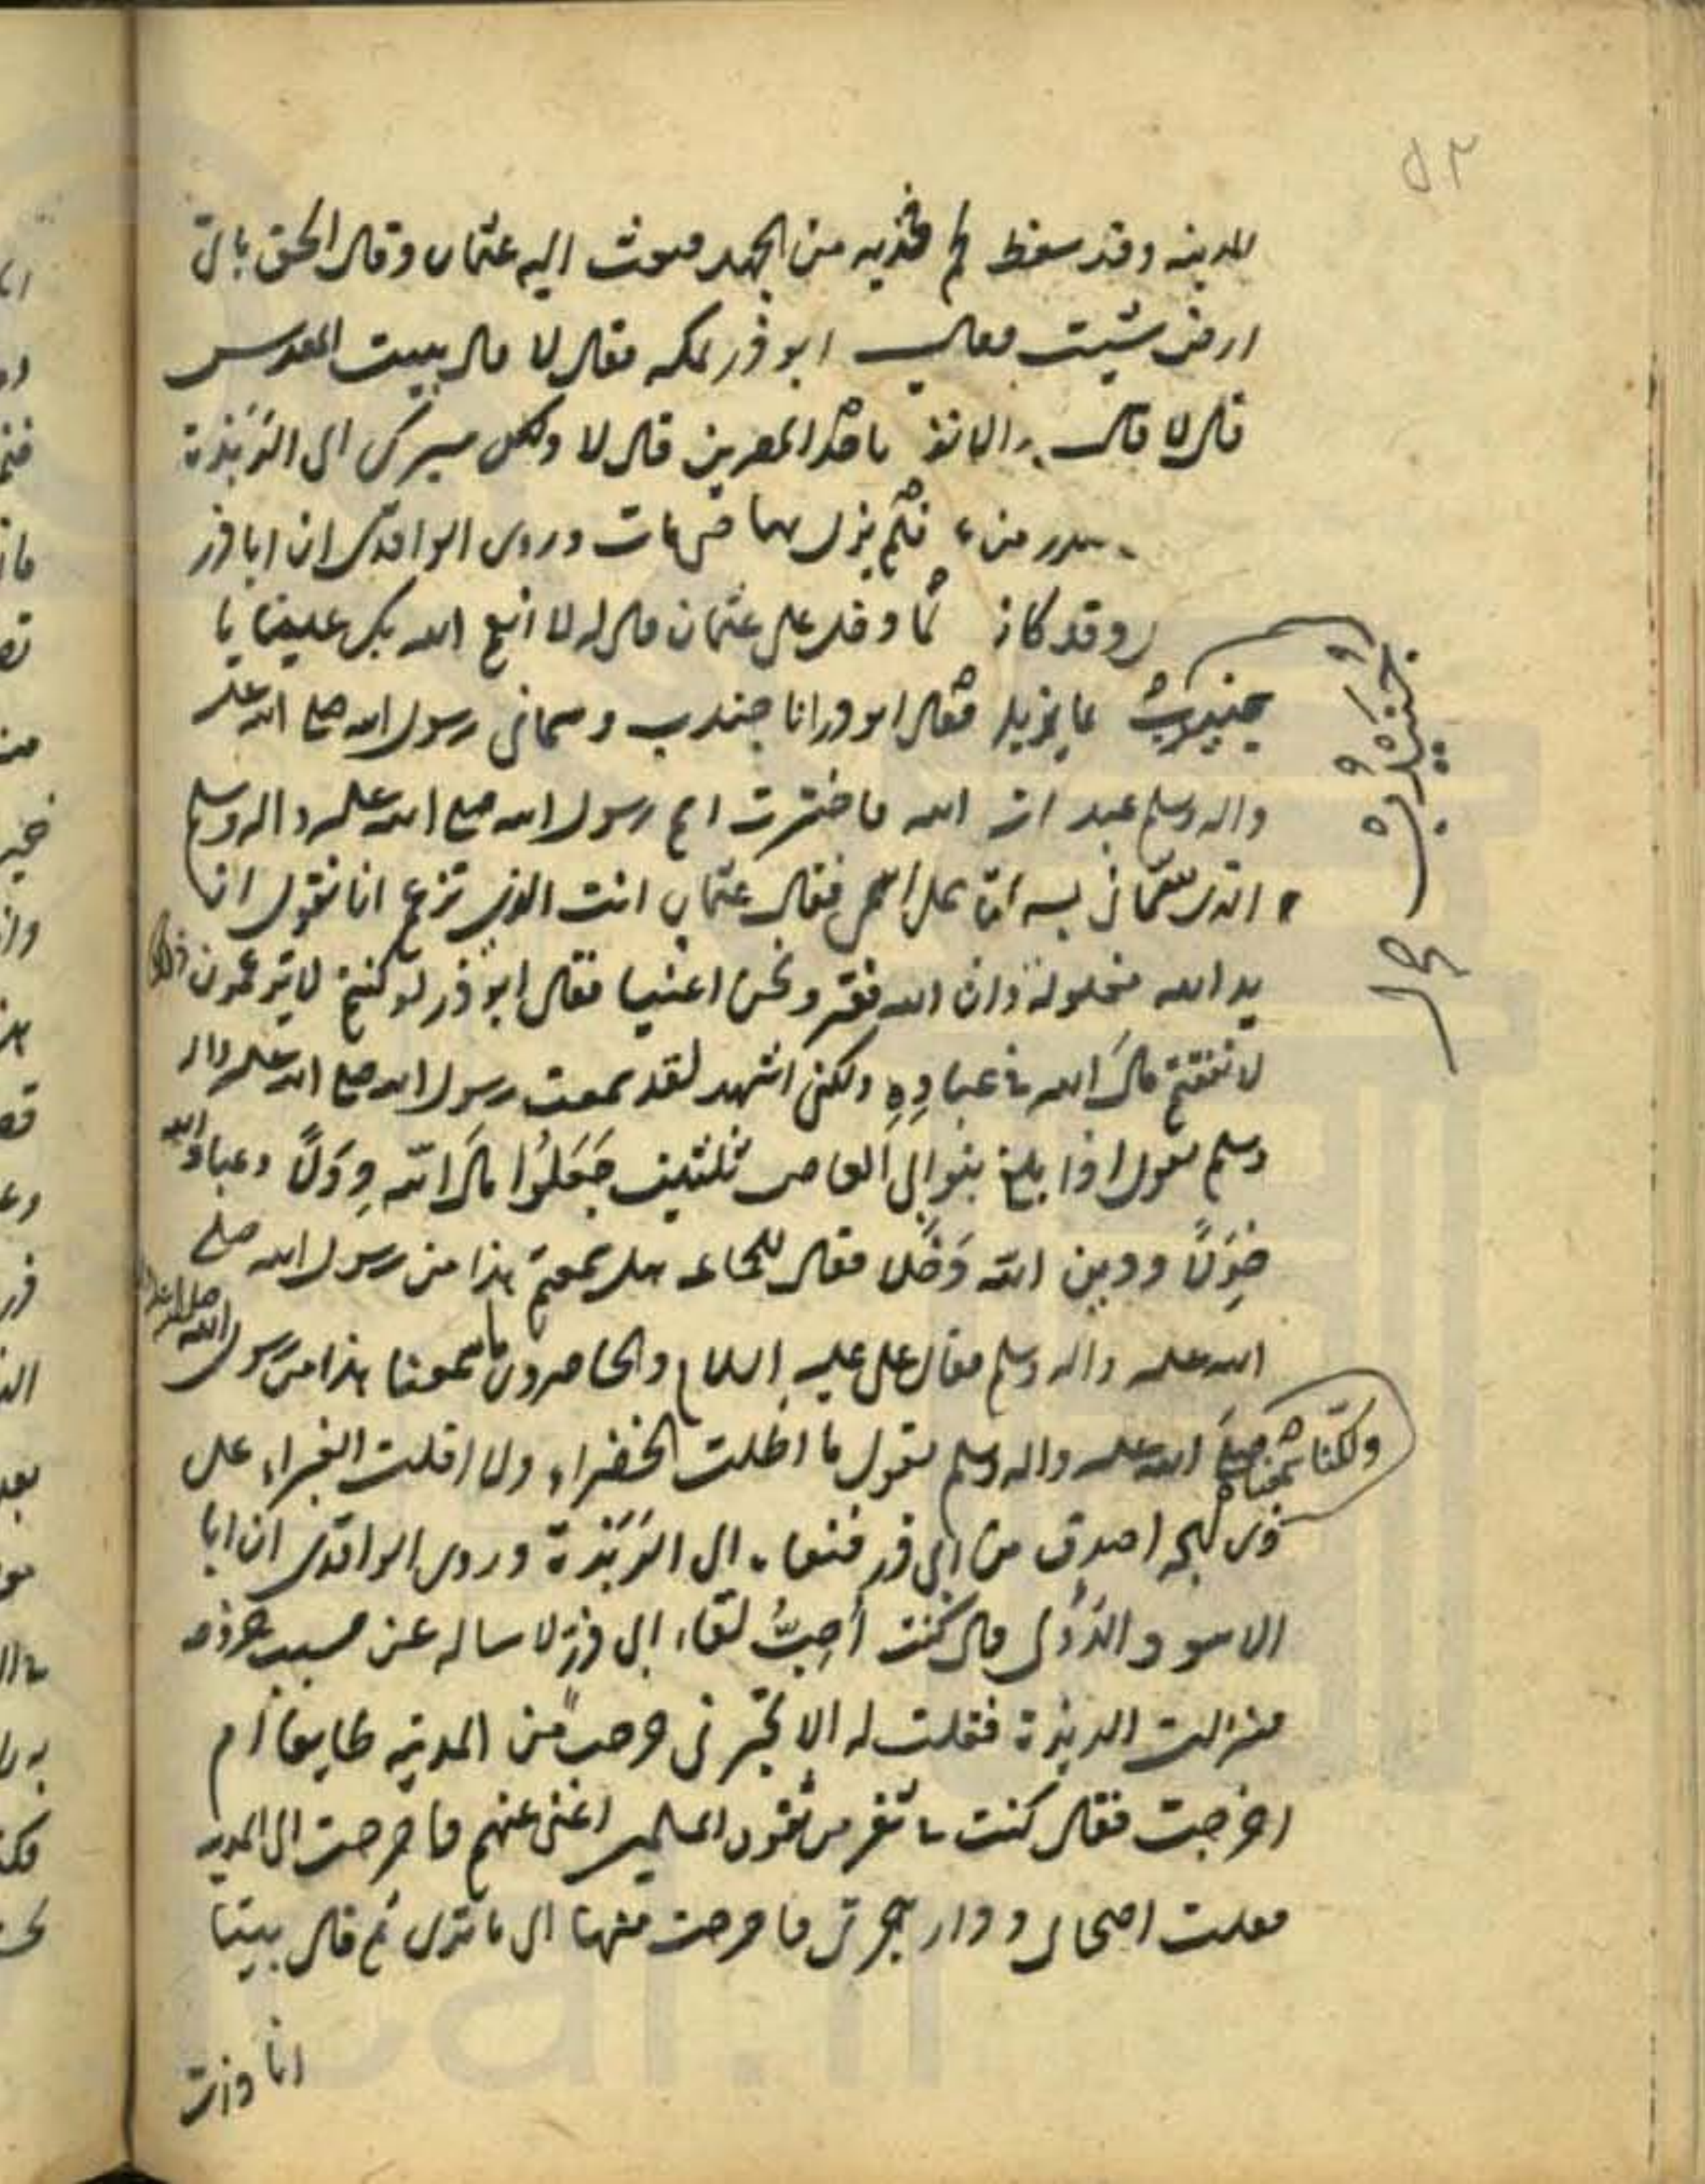 المدينه وقد سقط لحم فخذيه من الجهد فبعث اليه عثمان وقال الحق باى
ارض شئت فقال ابو ذر بمكه فقال لا قال ببيت المقدس
قال لا قال باحد المصرين قال لا ولكنى مسيرك الى الربذة
فلم يزل بها حتى مات وروى الواقدى ان اباذر
لما دخل على عثمان قال له لا انعم الله بك علينا يا
جنيدب فقال ابوذر انا جندب وسمانى رسول الله صلى الله عليه
واله وسلم عبد الله فاخترت اسم رسول الله صلى الله عليه واله وسلم
الذى سمانى به على اسمى فقال عثمان انت الذى تزعم انا نقول ان
يد الله مغلولة وان الله فقير ونحن اغنيا فقال ابو ذر لو كنتم لا تزعمون ذلك
لانفقتم مال الله على عباده ولكنى اشهد لقد سمعت رسول الله صلى الله عليه واله
وسلم يقول اذا بلغ بنو ابى العاص ثلثين جعلوا مال الله دولا وعباد الله
خولا ودين الله دخلا فقال للجماعه هل سمعتم هذا من رسول الله صلى
الله عليه واله وسلم فقال على عليه السلام والحاضرون ما سمعنا هذا من رسول الله
ولكنا سمعناه صلى الله عليه واله وسلم يقول ما اظلت الخضراء ولا اقلت الغبراء على
ذى لهجه اصدق من ابى ذر فنفاه الى الربذة وروى الواقدى ان ابا
الاسود الدؤلى قال كنت احب لقاء ابى ذر لاساله عن سبب خروجه
فنزلت الربذة فقلت له الا تخبرنى خرجت من المدينه طايعا ام
اخرجت فقال كنت فى ثغر من ثغور المسلمين اغنى عنهم فاخرجت الى المدينه
فقلت اصحابى ودار هجرتى فاخرجت منها الى ما ترى ثم قال بينا
انا ذات
جنيدب